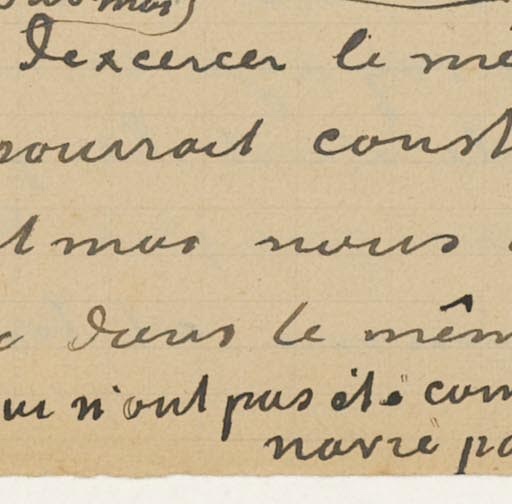 D'exercer le mê
pourrait const
t mas nous
dans le mêm
ui n'ont pas été com
navré pa